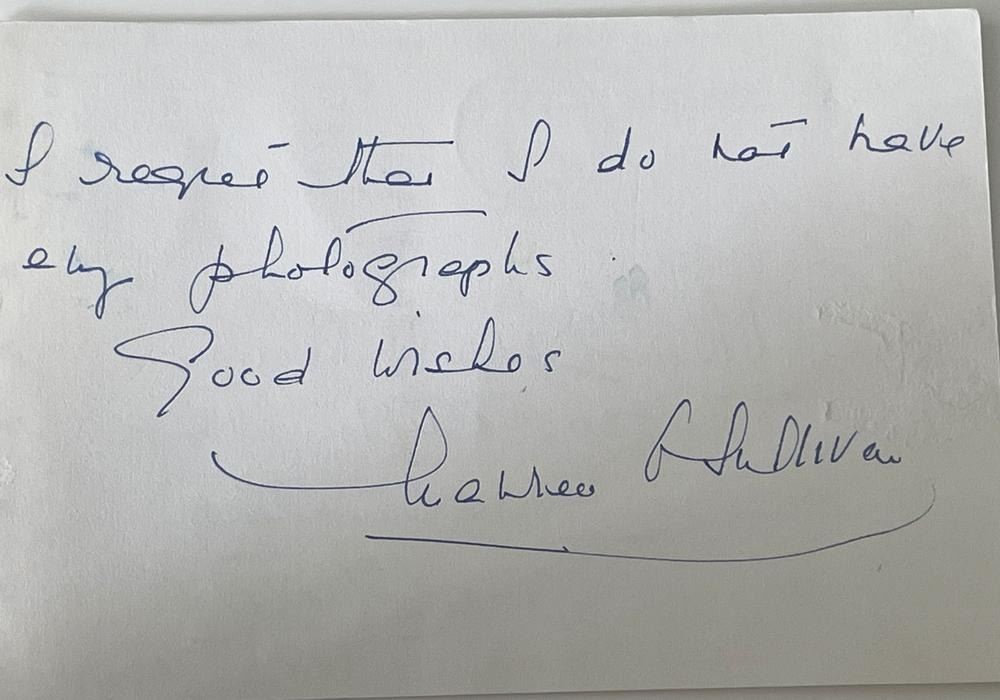 I regret that I do not have
any photographs
Good wishes
O'Sullivan